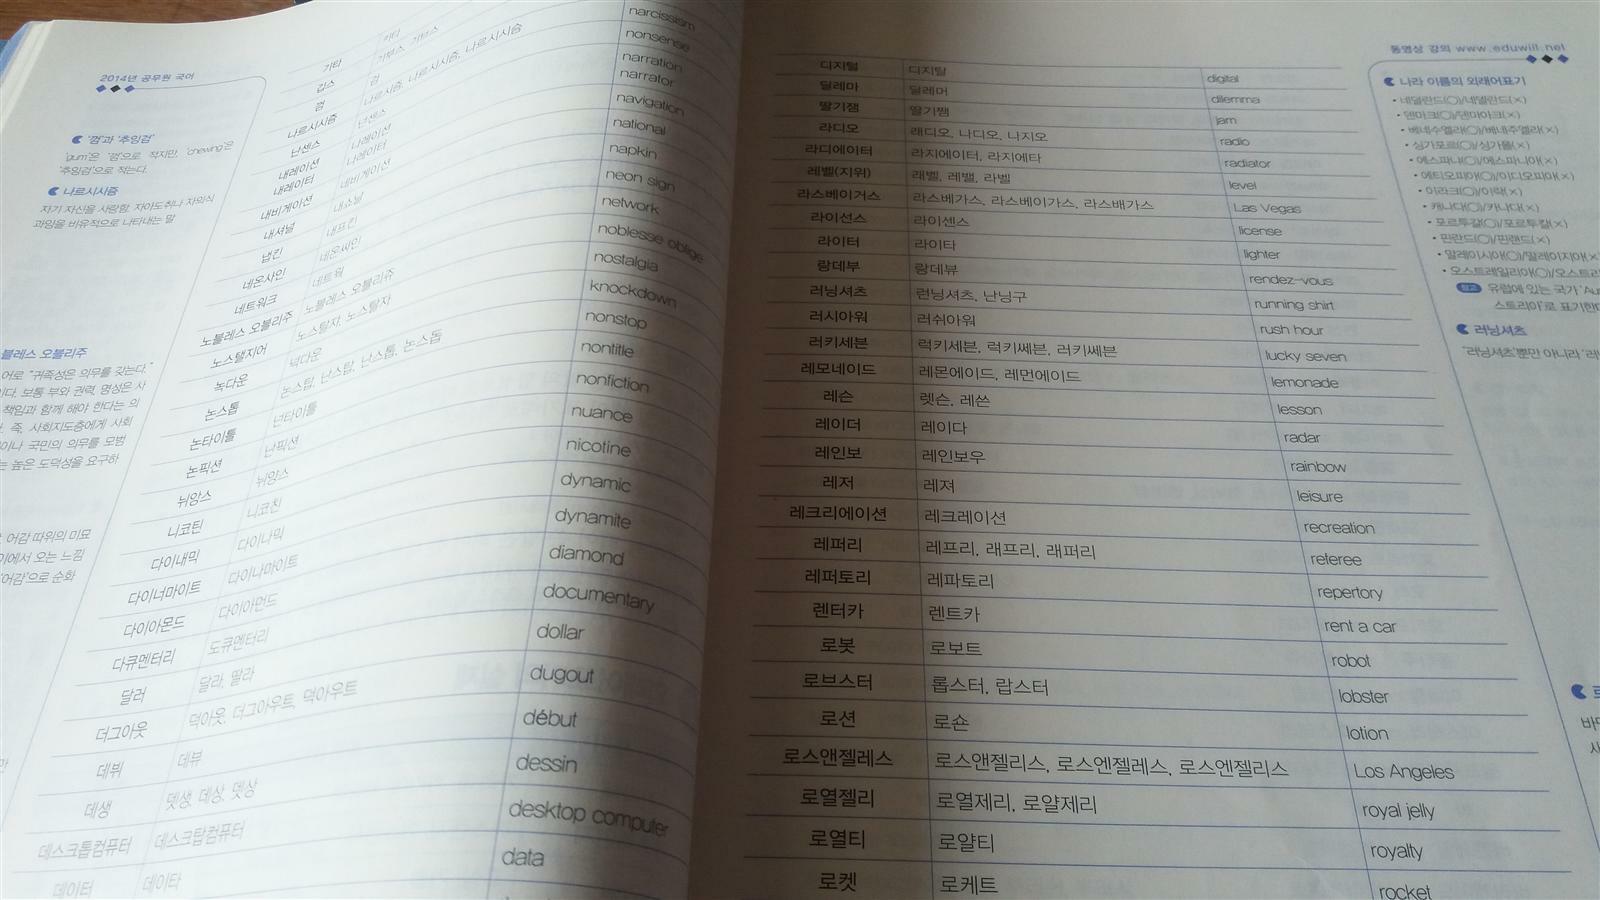 2014년 공무원 국어
'껌'과 '추잉검'
'gum'은 '껌'으로 적지만, 'chewing'은
'추잉검'으로 적는다.
나르시시즘
자기 자신을 사랑함. 자아도취나 자의식
과잉을 비유적으로 나타내는 말
블레스 오블리주
어로 "귀족성은 의무를 갖는다."
이다. 보통 부와 권력, 명성은 사
책임과 함께 해야 한다는 의
즉, 사회지도층에게 사회
이나 국민의 의무를 모범
는 높은 도덕성을 요구하
어감 따위의 미묘
이에서 오는 느낌
'어감'으로 순화
기타 키타
깁스 기부스, 기브스
껌 검
나르시시즘 나르시즘, 나르시시즘, 나르시시즘 narcissism
난센스 넌센스 nonsense
내레이션 나레이션 narration
내레이터 나레이터 narrator
내비게이션 네비게이션 navigation
내셔널 내쇼널 national
냅킨 내프킨 napkin
네온사인 네온싸인 neon sign
네트워크 네트웍 network
노블레스 오블리주 노블레스 오블리쥬 noblesse oblige
노스탤지어 노스탈자, 노스탈쟈 nostalgia
녹다운 넉다운 knockdown
논스톱 논스탑, 난스탑, 난스톱, 논스돕 nonstop
논타이틀 넌타이틀 nontitle
논픽션 넌픽션 nonfiction
뉘앙스 뉘앙스 nuance
니코틴 니코친 nicotine
다이내믹 다이나믹 dynamic
다이너마이트 다이나마이트 dynamite
다이아몬드 다이아먼드 diamond
다큐멘터리 도큐멘터리 documentary
달러 달라, 딸라 dollar
더그아웃 덕아웃, 더그아우트, 덕아우트 dugout
데뷔 데뷰 début
데생 뎃생, 데상, 뎃상 dessin
데스크톱컴퓨터 데스크탑컴퓨터 desktop computer
데이터 데이타 data
동영상 강의 www.eduwill.net
디지털 디지탈 digital
딜레마 딜레머 dilemma
딸기잼 딸기쨈 jam
라디오 래디오, 나디오, 나지오 radio
라디에이터 라지에이터, 라지에타 radiator
레벨(지위) 래벨, 레밸, 라벨 level
라스베이거스 라스베가스, 라스베이가스, 라스배가스 Las Vegas
라이선스 라이센스 license
라이터 라이타 lighter
랑데부 랑데뷰 rendez-vous
러닝셔츠 런닝셔츠, 난닝구 running shirt
러시아워 러쉬아워 rush hour
러키세븐 럭키세븐, 럭키쎄븐, 러키쎄븐 lucky seven
레모네이드 레몬에이드, 레먼에이드 lemonade
레슨 렛슨, 레쓴 lesson
레이더 레이다 radar
레인보 레인보우 rainbow
레저 레져 leisure
레크리에이션 레크레이션 recreation
레퍼리 레프리, 래프리, 래퍼리 referee
레퍼토리 레파토리 repertory
렌터카 렌트카 rent a car
로봇 로보트 robot
로브스터 롭스터, 랍스터 lobster
로션 로숀 lotion
로스앤젤레스 로스앤젤리스, 로스엔젤레스, 로스엔젤리스 Los Angeles
로열젤리 로열제리, 로얄제리 royal jelly
로열티 로얄티 royalty
로켓 로케트 rocket
나라 이름의 외래어표기
• 네덜란드(○)/네델란드(×)
• 덴마크(○)/덴마아크(×)
• 베네수엘라(○)/배내주엘라(×)
• 싱가포르(○)/싱가폴(×)
• 에스파냐(○)/에스파니아(×)
• 에티오피아(○)/이디오피아(×)
• 이라크(○)/이락(×)
• 캐나다(○)/카나다(×)
• 포르투갈(○)/포르투칼(×)
• 핀란드(○)/핀랜드(×)
• 말레이시아(○)/말레이지아(×
• 오스트레일리아(○)/오스트리
참고 유럽에 있는 국가 'Au
스토리아'로 표기한다
러닝셔츠
'러닝셔츠'뿐만 아니라 '러